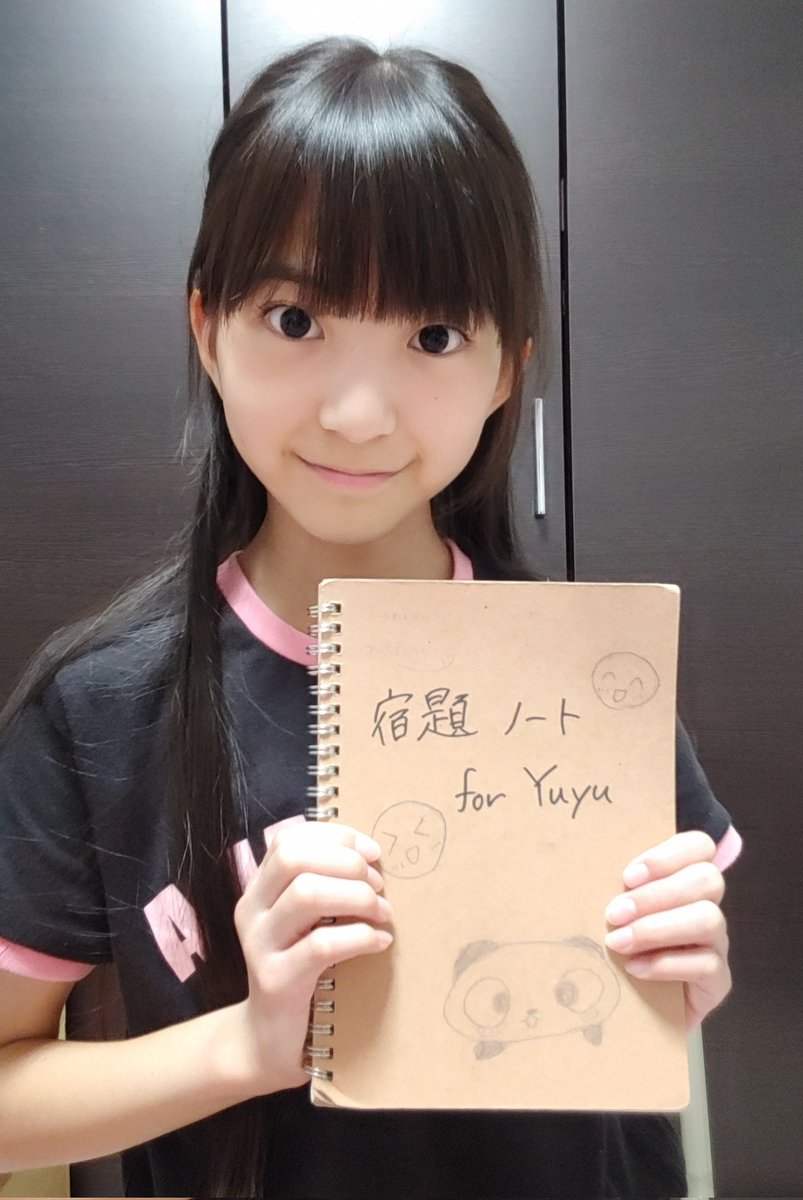 宿題 ノート
for Yuyu
A